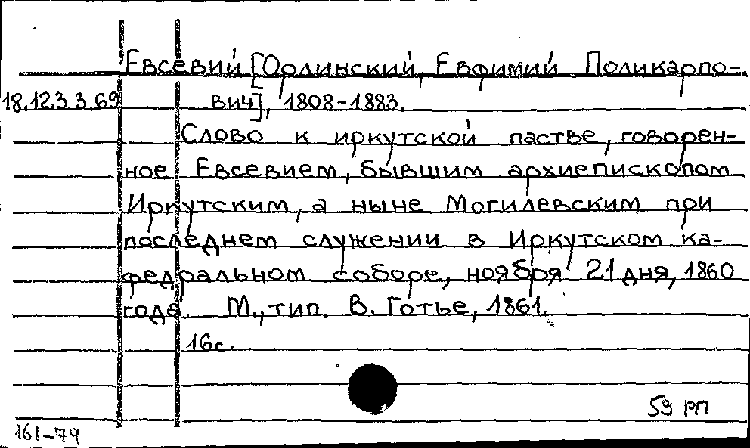 Евсевий [Орлинский, Евфимий Поликарпо-
18.12.3.3.69 вич], 1808-1883.
Слово к иркутской пастве, говорен-
ное Евсевием, бывшим архиепископом
Иркутским, а ныне Могилевским при
последнем служении в Иркутском ка-
федральном соборе, ноября 21 дня, 1860
года. М., тип. В. Готье, 1861.
16с.
59 РП
161-79